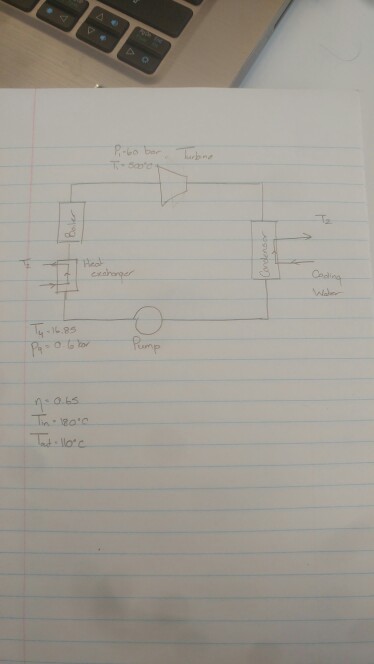 P1=60 bar
T1=500°C
Turbine
Boiler
Heat
exchanger
Condensor
T2
Cooling
Water
Pump
T4=16.85
P4=0.6 bar
η=0.65
Tin=180°C
Tout=110°C